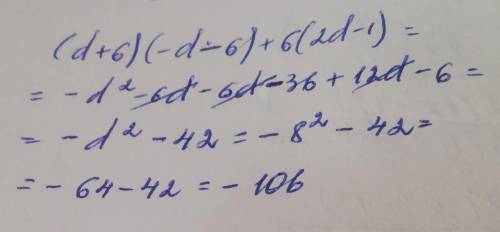 (d+6)(-d-6)+6(2d-1)=
= -d²-6d-6d-36+12d-6=
= -d²-42=-8²-42=
= -64-42=-106